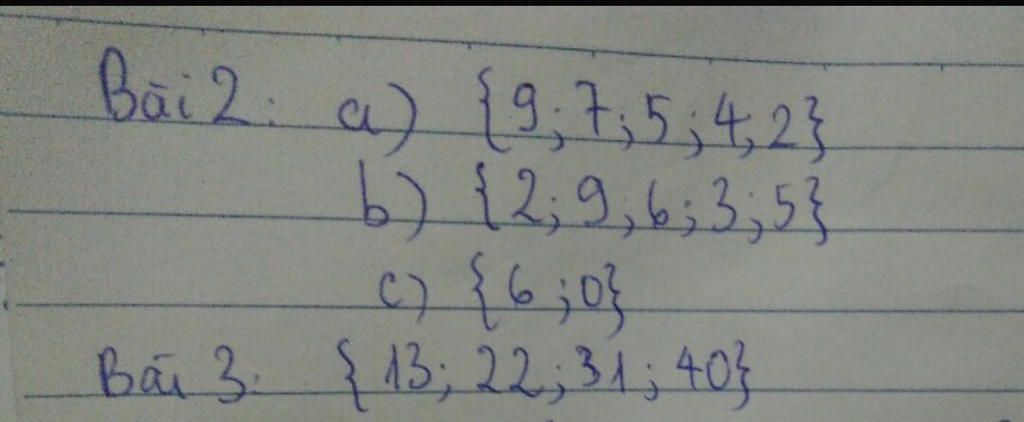 Bài 2: a) {9; 7; 5; 4; 2}
b) {2; 9; 6; 3; 5}
c) {6; 0}
Bài 3: {13; 22; 31; 40}